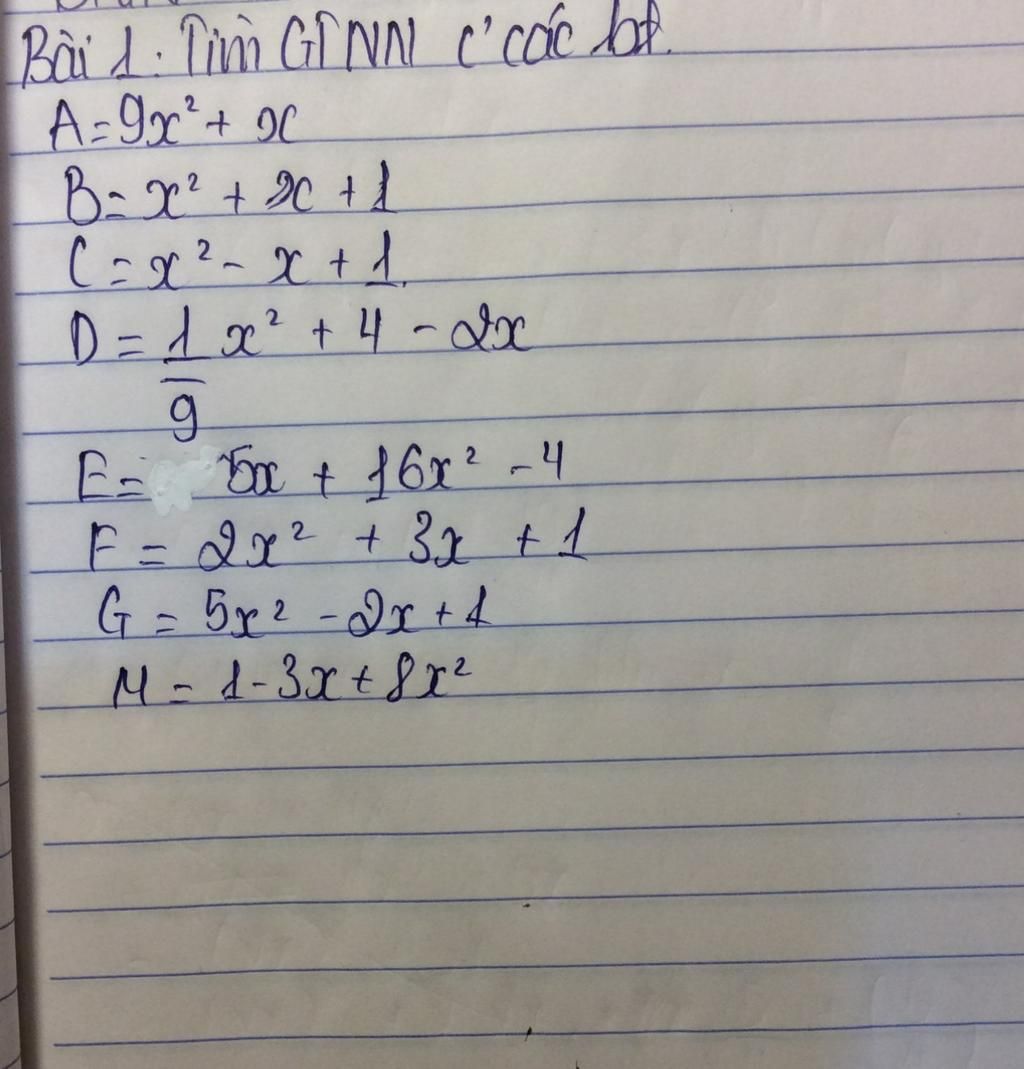 Bài 1: Tìm GTNN c' các bt.
A = 9x² + x
B = x² + x + 1
C = x² - x + 1.
D = 1/9 x² + 4 - 2x
E = 5x + 16x² - 4
F = 2x² + 3x + 1
G = 5x² - 2x + 1
M = 1 - 3x + 8x²